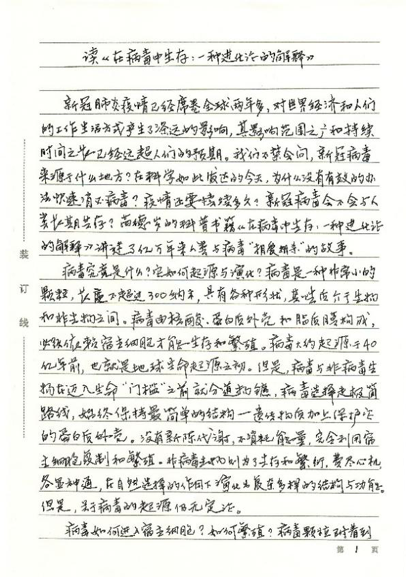 读《在病毒中生存:一种进化论的解释》
新冠肺炎疫情已经席卷全球两年多,对世界经济和人们
的工作生活方式产生了深远的影响,其影响范围之广和持续
时间之长已经远超人们的预期。我们不禁会问,新冠病毒
来源于什么地方?在科学如此发达的今天,为什么没有有效的办
法快速消灭病毒?疫情还要持续多久?新冠病毒会不会与人
类长期生存?苗德岁的科普书籍《在病毒中生存:一种进化论
的解释》讲述了亿万年来人类与病毒“相爱相杀”的故事。
病毒究竟是什么?它如何起源与演化?病毒是一种非常小的
颗粒,长度不超过300纳米,具有各种形状,其实质介于生物
和非生物之间。病毒由核酸、蛋白质外壳和脂质膜构成,
必须依赖宿主细胞才能生存和繁殖。病毒大约起源于40
亿年前,也就是地球生命起源之初。但是,病毒与非病毒生
物在迈入生命“门槛”之前就分道扬镳,病毒选择走极简
路线,始终保持最简单的结构—遗传物质加上保护它
的蛋白质外壳。没有新陈代谢,不消耗能量,完全利用宿
主细胞复制和繁殖。非病毒生物则为了生存和繁衍,费尽心机,
各显神通,在自然选择的作用下演化出复杂多样的结构与功能。
但是,关于病毒的起源仍无定论。
病毒如何进入宿主细胞?如何繁殖?病毒颗粒
装订线
第1页